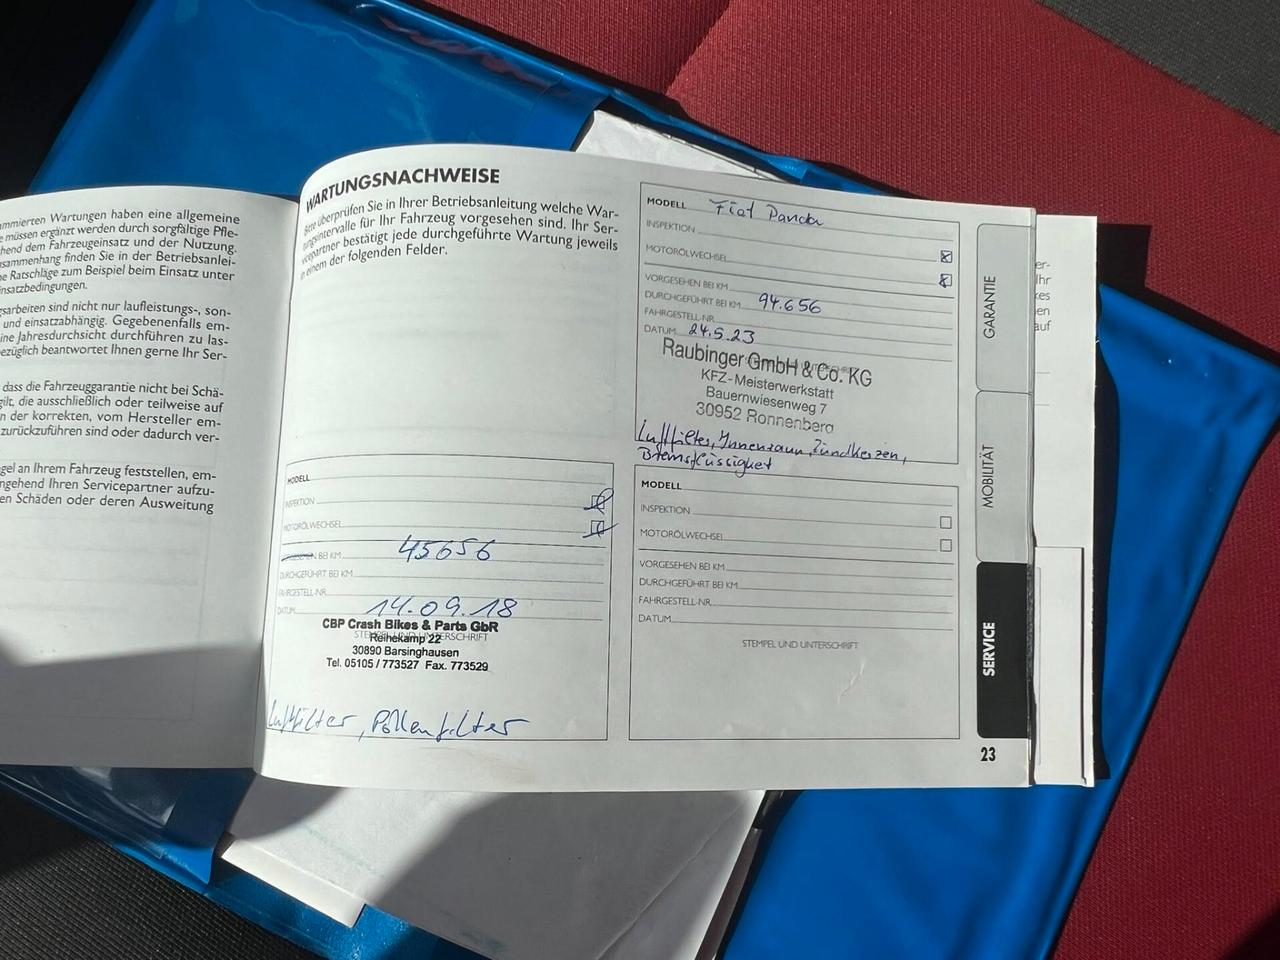 ammierten Wartungen haben eine allgemeine
e müssen ergänzt werden durch sorgfältige Pfle-
hend dem Fahrzeugeinsatz und der Nutzung.
usammenhang finden Sie in der Betriebsanlei-
he Ratschläge zum Beispiel beim Einsatz unter
insatzbedingungen.
gsarbeiten sind nicht nur laufleistungs-, son-
und einsatzabhängig. Gegebenenfalls em-
ine Jahresdurchsicht durchführen zu las-
ezüglich beantwortet Ihnen gerne Ihr Ser-
dass die Fahrzeuggarantie nicht bei Schä-
gilt, die ausschließlich oder teilweise auf
n der korrekten, vom Hersteller em-
zurückzuführen sind oder dadurch ver-
gel an Ihrem Fahrzeug feststellen, em-
ngehend Ihren Servicepartner aufzu-
en Schäden oder deren Ausweitung
WARTUNGSNACHWEISE
Bitte überprüfen Sie in Ihrer Betriebsanleitung welche War-
tungsintervalle für Ihr Fahrzeug vorgesehen sind. Ihr Ser-
vicepartner bestätigt jede durchgeführte Wartung jeweils
in einem der folgenden Felder.
MODELL
INSPEKTION
MOTORÖLWECHSEL
VORGESEHEN BEI KM 45656
DURCHGEFÜHRT BEI KM
FAHRGESTELL-NR.
DATUM 14.09.18
CBP Crash Bikes & Parts GbR
STEMPEL UND UNTERSCHRIFT
Reihekamp 22
30890 Barsinghausen
Tel. 05105 / 773527 Fax. 773529
Luftfilter, Pollenfilter
MODELL Fiat Panda
INSPEKTION
MOTORÖLWECHSEL
VORGESEHEN BEI KM
DURCHGEFÜHRT BEI KM 94.656
FAHRGESTELL-NR.
DATUM 24.5.23
Raubinger GmbH & Co. KG
STEMPEL UND UNTERSCHRIFT
KFZ-Meisterwerkstatt
Bauernwiesenweg 7
30952 Ronnenberg
Luftfilter, Innenraum, Zündkerzen,
Bremsflüssigkeit
MODELL
INSPEKTION
MOTORÖLWECHSEL
VORGESEHEN BEI KM
DURCHGEFÜHRT BEI KM
FAHRGESTELL-NR.
DATUM
STEMPEL UND UNTERSCHRIFT
GARANTIE
MOBILITÄT
SERVICE
23
er-
Ihr
kes
en
auf